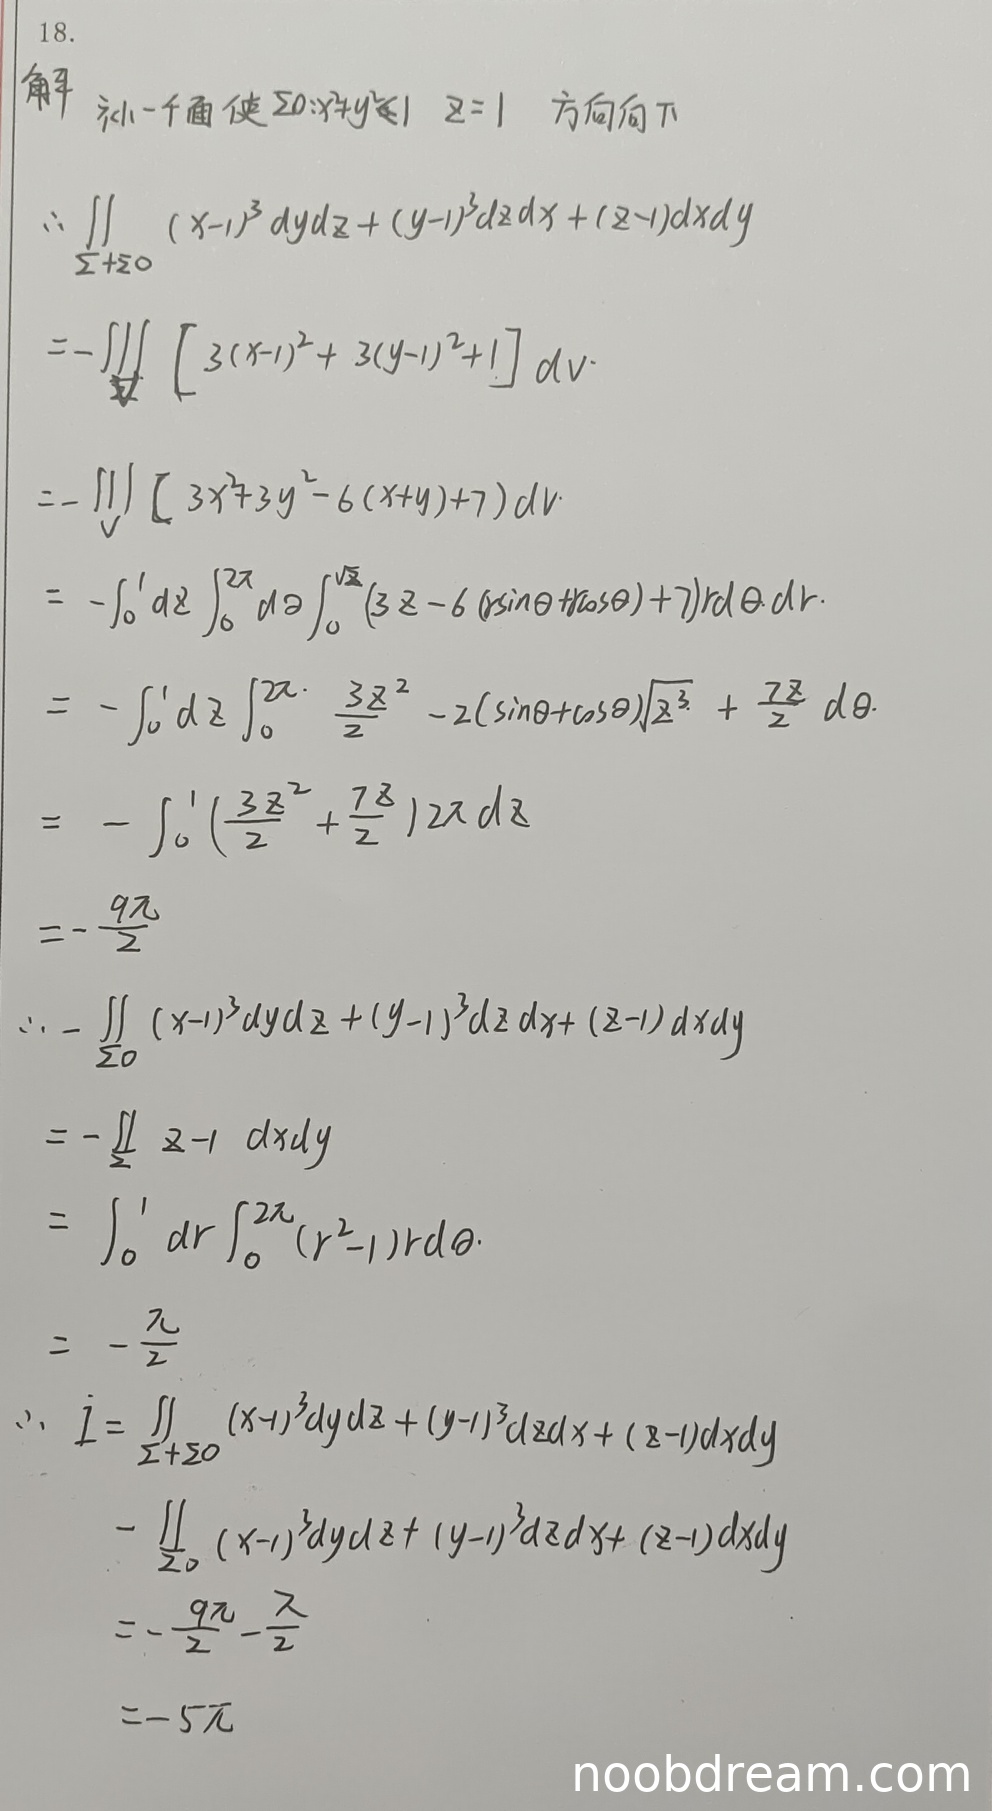 18.
解 补一个面使Σ0:x²+y²≤1 z=1 方向向下
∴ ∬_{Σ+Σ0} (x-1)³dydz+(y-1)³dzdx+(z-1)dxdy
=-∭_V [3(x-1)²+3(y-1)²+1]dv.
=-∭_V [3x²+3y²-6(x+y)+7)dv.
= -∫₀¹dz∫₀^{2π}dθ∫₀^{√z}(3z-6(rsinθ+rcosθ)+7)rdθ.dr.
= -∫₀¹dz∫₀^{2π}. 3z²/2 -2(sinθ+cosθ)√z³. + 7z/2 dθ.
= -∫₀¹(3z²/2+7z/2)2πdz
=-9π/2
∴-∬_{Σ0}(x-1)³dydz+(y-1)³dzdx+(z-1)dxdy
=-∬_Σ z-1 dxdy
= ∫₀¹dr∫₀^{2π}(r²-1)rdθ.
= -π/2
∴ I=∬_{Σ+Σ0}(x-1)³dydz+(y-1)³dzdx+(z-1)dxdy
-∬_{Σ0}(x-1)³dydz+(y-1)³dzdx+(z-1)dxdy
=-9π/2-π/2
=-5π
noobdream.com